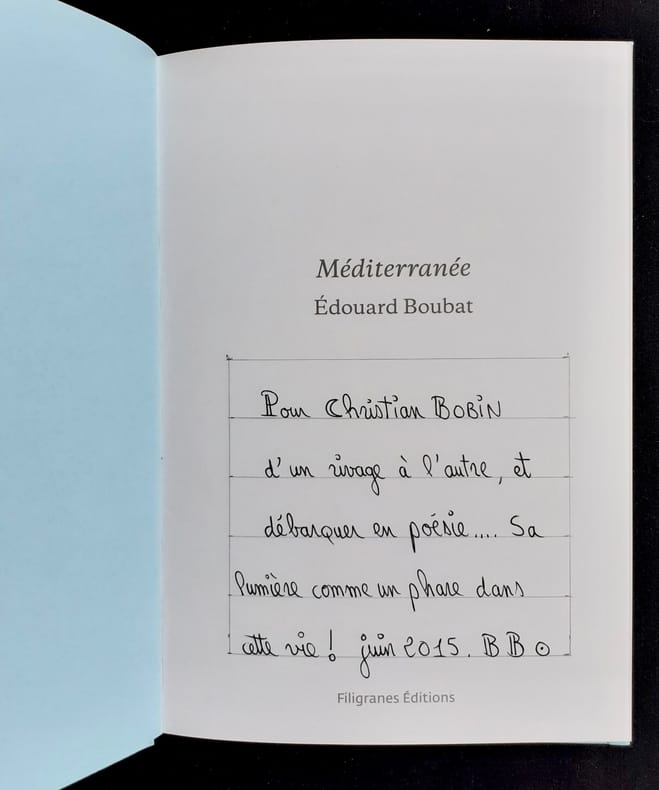 Méditerranée
Édouard Boubat
Pour Christian BOBIN
d'un rivage à l'autre, et
débarquer en poésie.... Sa
lumière comme un phare dans
cette vie ! juin 2015. BB
Filigranes Éditions